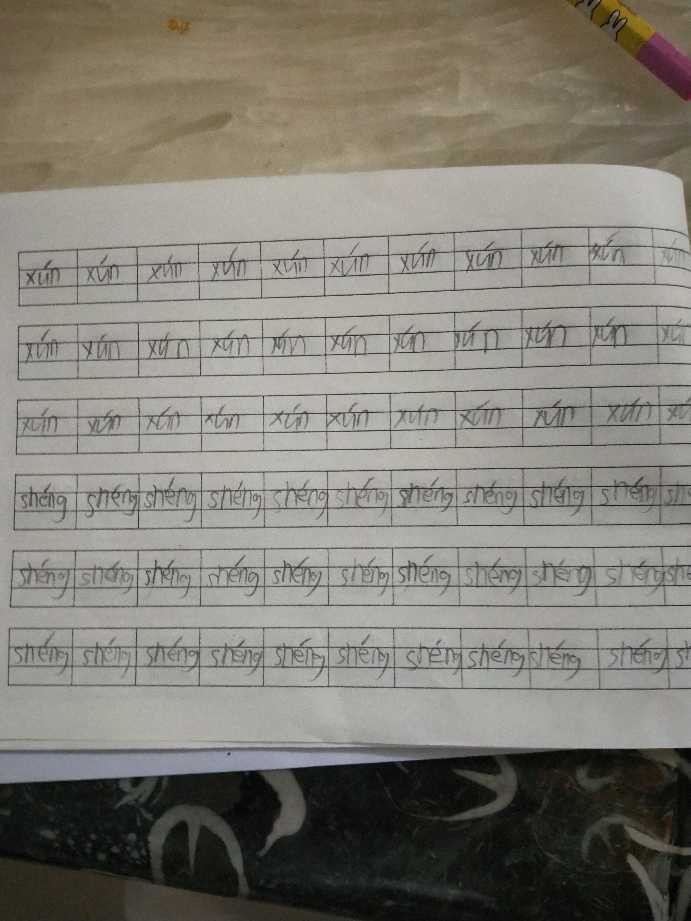 xún xún xún xún xún xún xún xún xún xún xún
xún xún xún xún xún xún xún xún xún xún xú
xún xún xún xún xún xún xún xún xún xún xú
shéng shéng shéng shéng shéng shéng shéng shéng shéng shéng sh
shéng shéng shéng shéng shéng shéng shéng shéng shéng shéng she
shéng shéng shéng shéng shéng shéng shéng shéng shéng shéng sh